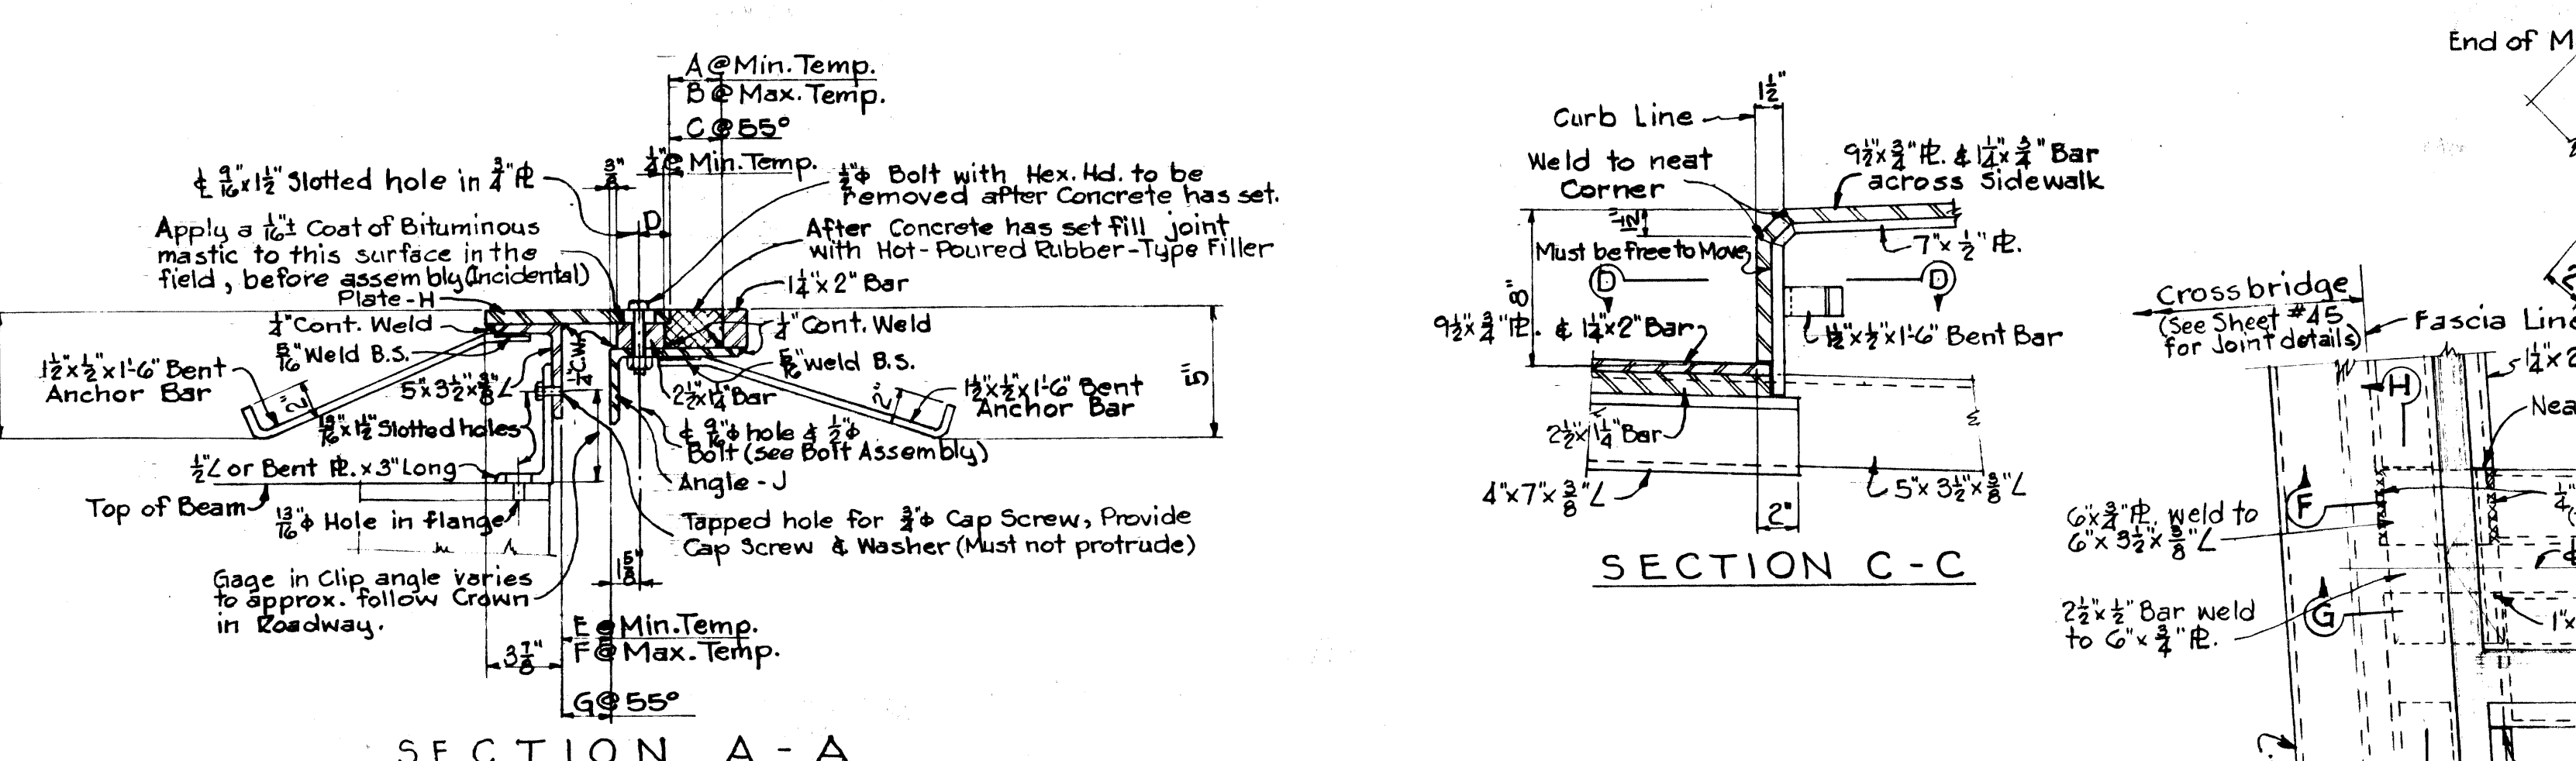 A @ Min. Temp.
B @ Max. Temp.
C @ 55°
3/8"
1/4" @ Min. Temp.
℄ 9/16" x 1 1/2" Slotted hole in 3/4" ℙL
D
1/2"ϕ Bolt with Hex. Hd. to be
removed after Concrete has set.
Apply a 1/16"± Coat of Bituminous
mastic to this surface in the
field, before assembly (Incidental)
After Concrete has set fill joint
with Hot-Poured Rubber-Type Filler
1 1/4" x 2" Bar
Plate-H
1/4" Cont. Weld
5/16" Weld B.S.
1/4" Cont. Weld
5/16" Weld B.S.
1 1/2" x 1/2" x 1'-6" Bent
Anchor Bar
2"
5" x 3 1/2" x 3/8" ∠
1/4" C.W.
2 1/2" x 1 1/4" Bar
2"
1 1/2" x 1/2" x 1'-6" Bent
Anchor Bar
5"
13/16" x 1 1/2" Slotted holes
℄ 9/16"ϕ hole & 1/2"ϕ
Bolt (see Bolt Assembly)
1/2" ∠ or Bent ℙL. x 3" Long
Angle-J
Top of Beam
13/16"ϕ Hole in flange
Tapped hole for 3/4"ϕ Cap Screw, Provide
Cap Screw & Washer (Must not protrude)
Gage in Clip angle varies
to approx. follow Crown
in Roadway.
1 5/8"
E @ Min. Temp.
F @ Max. Temp.
3 7/8"
G @ 55°
SECTION A-A
1 1/2"
Curb Line
Weld to neat
Corner
9 1/2" x 3/4" ℙL. & 1 1/4" x 3/4" Bar
across Sidewalk
Must be free to Move
7" x 1/2" ℙL.
D
D
8"
9 1/2" x 3/4" ℙL. & 1 1/4" x 2" Bar
1 1/2" x 1/2" x 1'-6" Bent Bar
2 1/2" x 1 1/4" Bar
4" x 7" x 3/8" ∠
5" x 3 1/2" x 3/8" ∠
2"
SECTION C-C
End of M
Crossbridge
(See Sheet #45
for Joint details)
Fascia Line
1 1/4" x 2
H
Nea
F
6" x 3/4" ℙL. weld to
6" x 3 1/2" x 3/8" ∠
1/4"
G
2 1/2" x 1/2" Bar weld
to 6" x 3/4" ℙL.
1" x